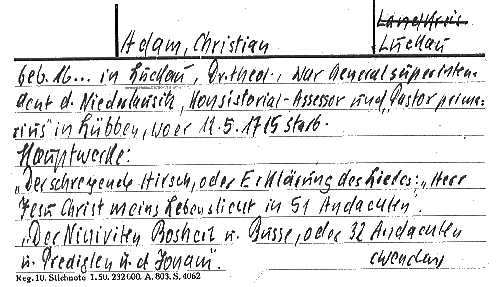 Landkreis
Adam, Christian
Luckau
geb. 16... in Luckau, Dr. theol., war Generalsuperinten-
dent d. Niederlausitz, Konsistorial-Assessor und "Pastor prima-
rius" in Lübben, wo er 11.5.1715 starb.
Hauptwerke:
"Der schreyende Hirsch, oder Erklärung des Liedes: "Herr
Jesu Christ meins Lebenslicht in 51 Andachten".
"Der Niniviten Bosheit u. Busse, oder 32 Andachten
u. Predigten ü. d. Jonam".
wenden
Reg. 10. Stichnote 1. 50. 232000. A. 803. S. 4062